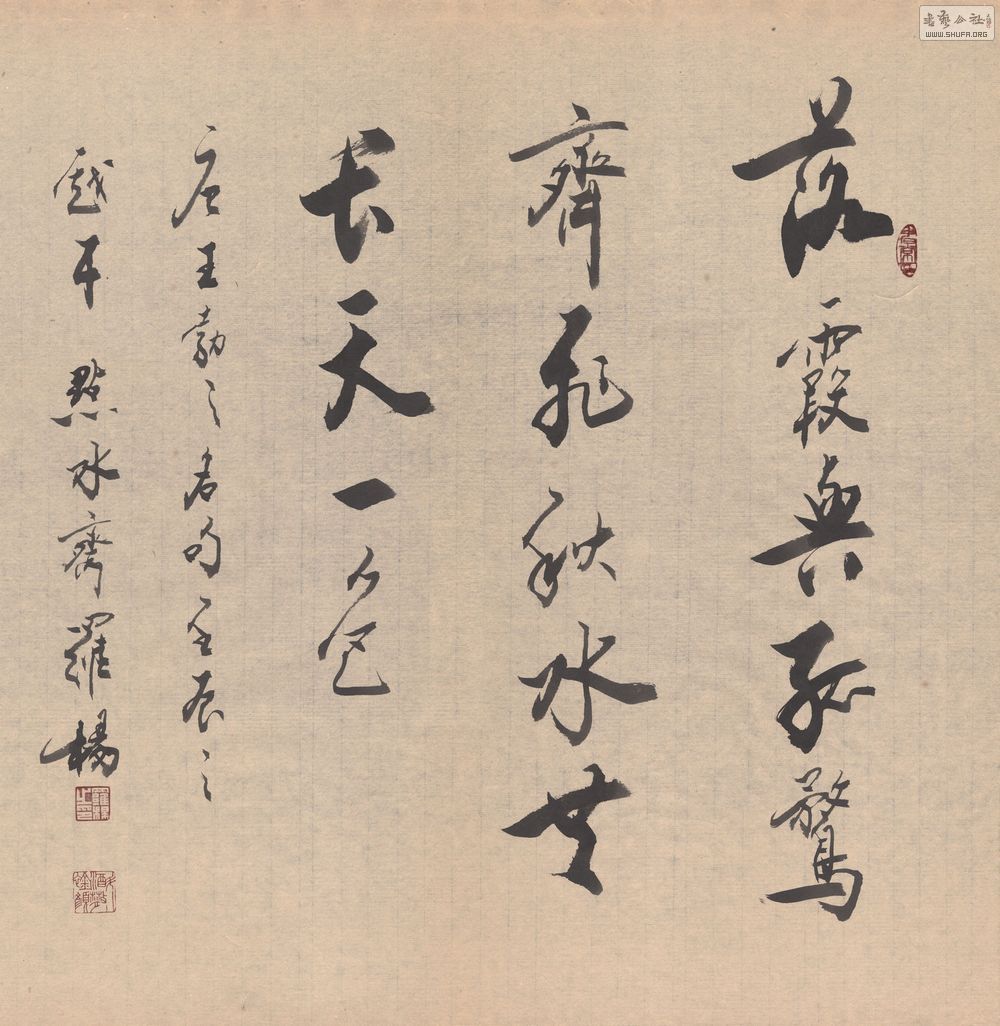 落霞與孤鶩
齊飛秋水共
長天一色
唐王勃之名句壬辰之
歲于點水齋羅楊
書藝公社
WWW.SHUFA.ORG